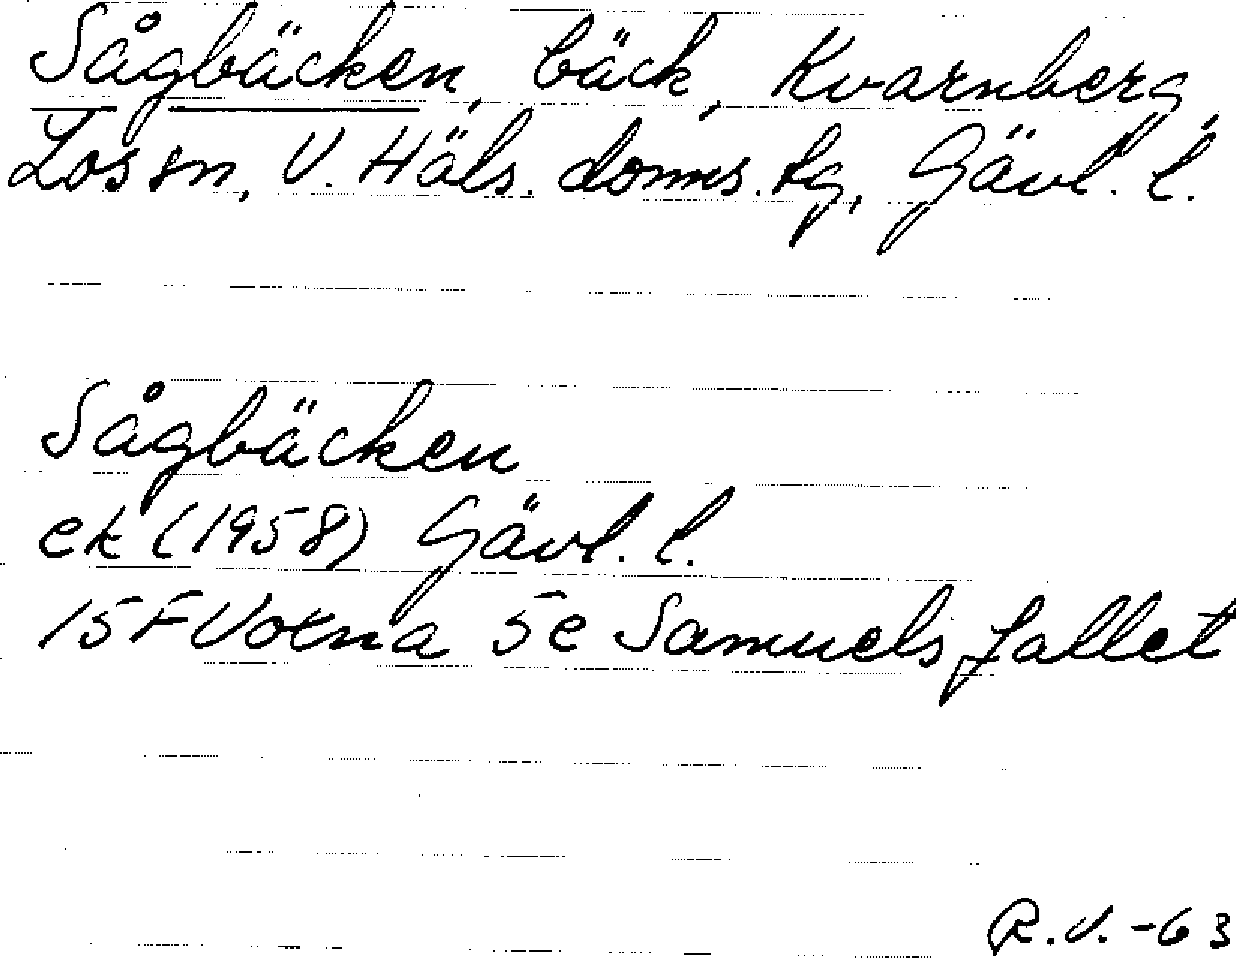 Sågbäcken, bäck, Kvarnberg,
Los sn, V. Häls. doms. tg, Gävl. l.
Sågbäcken
ek (1958) Gävl. l.
15F Voxna 5e Samuelsfallet
R.V. -63